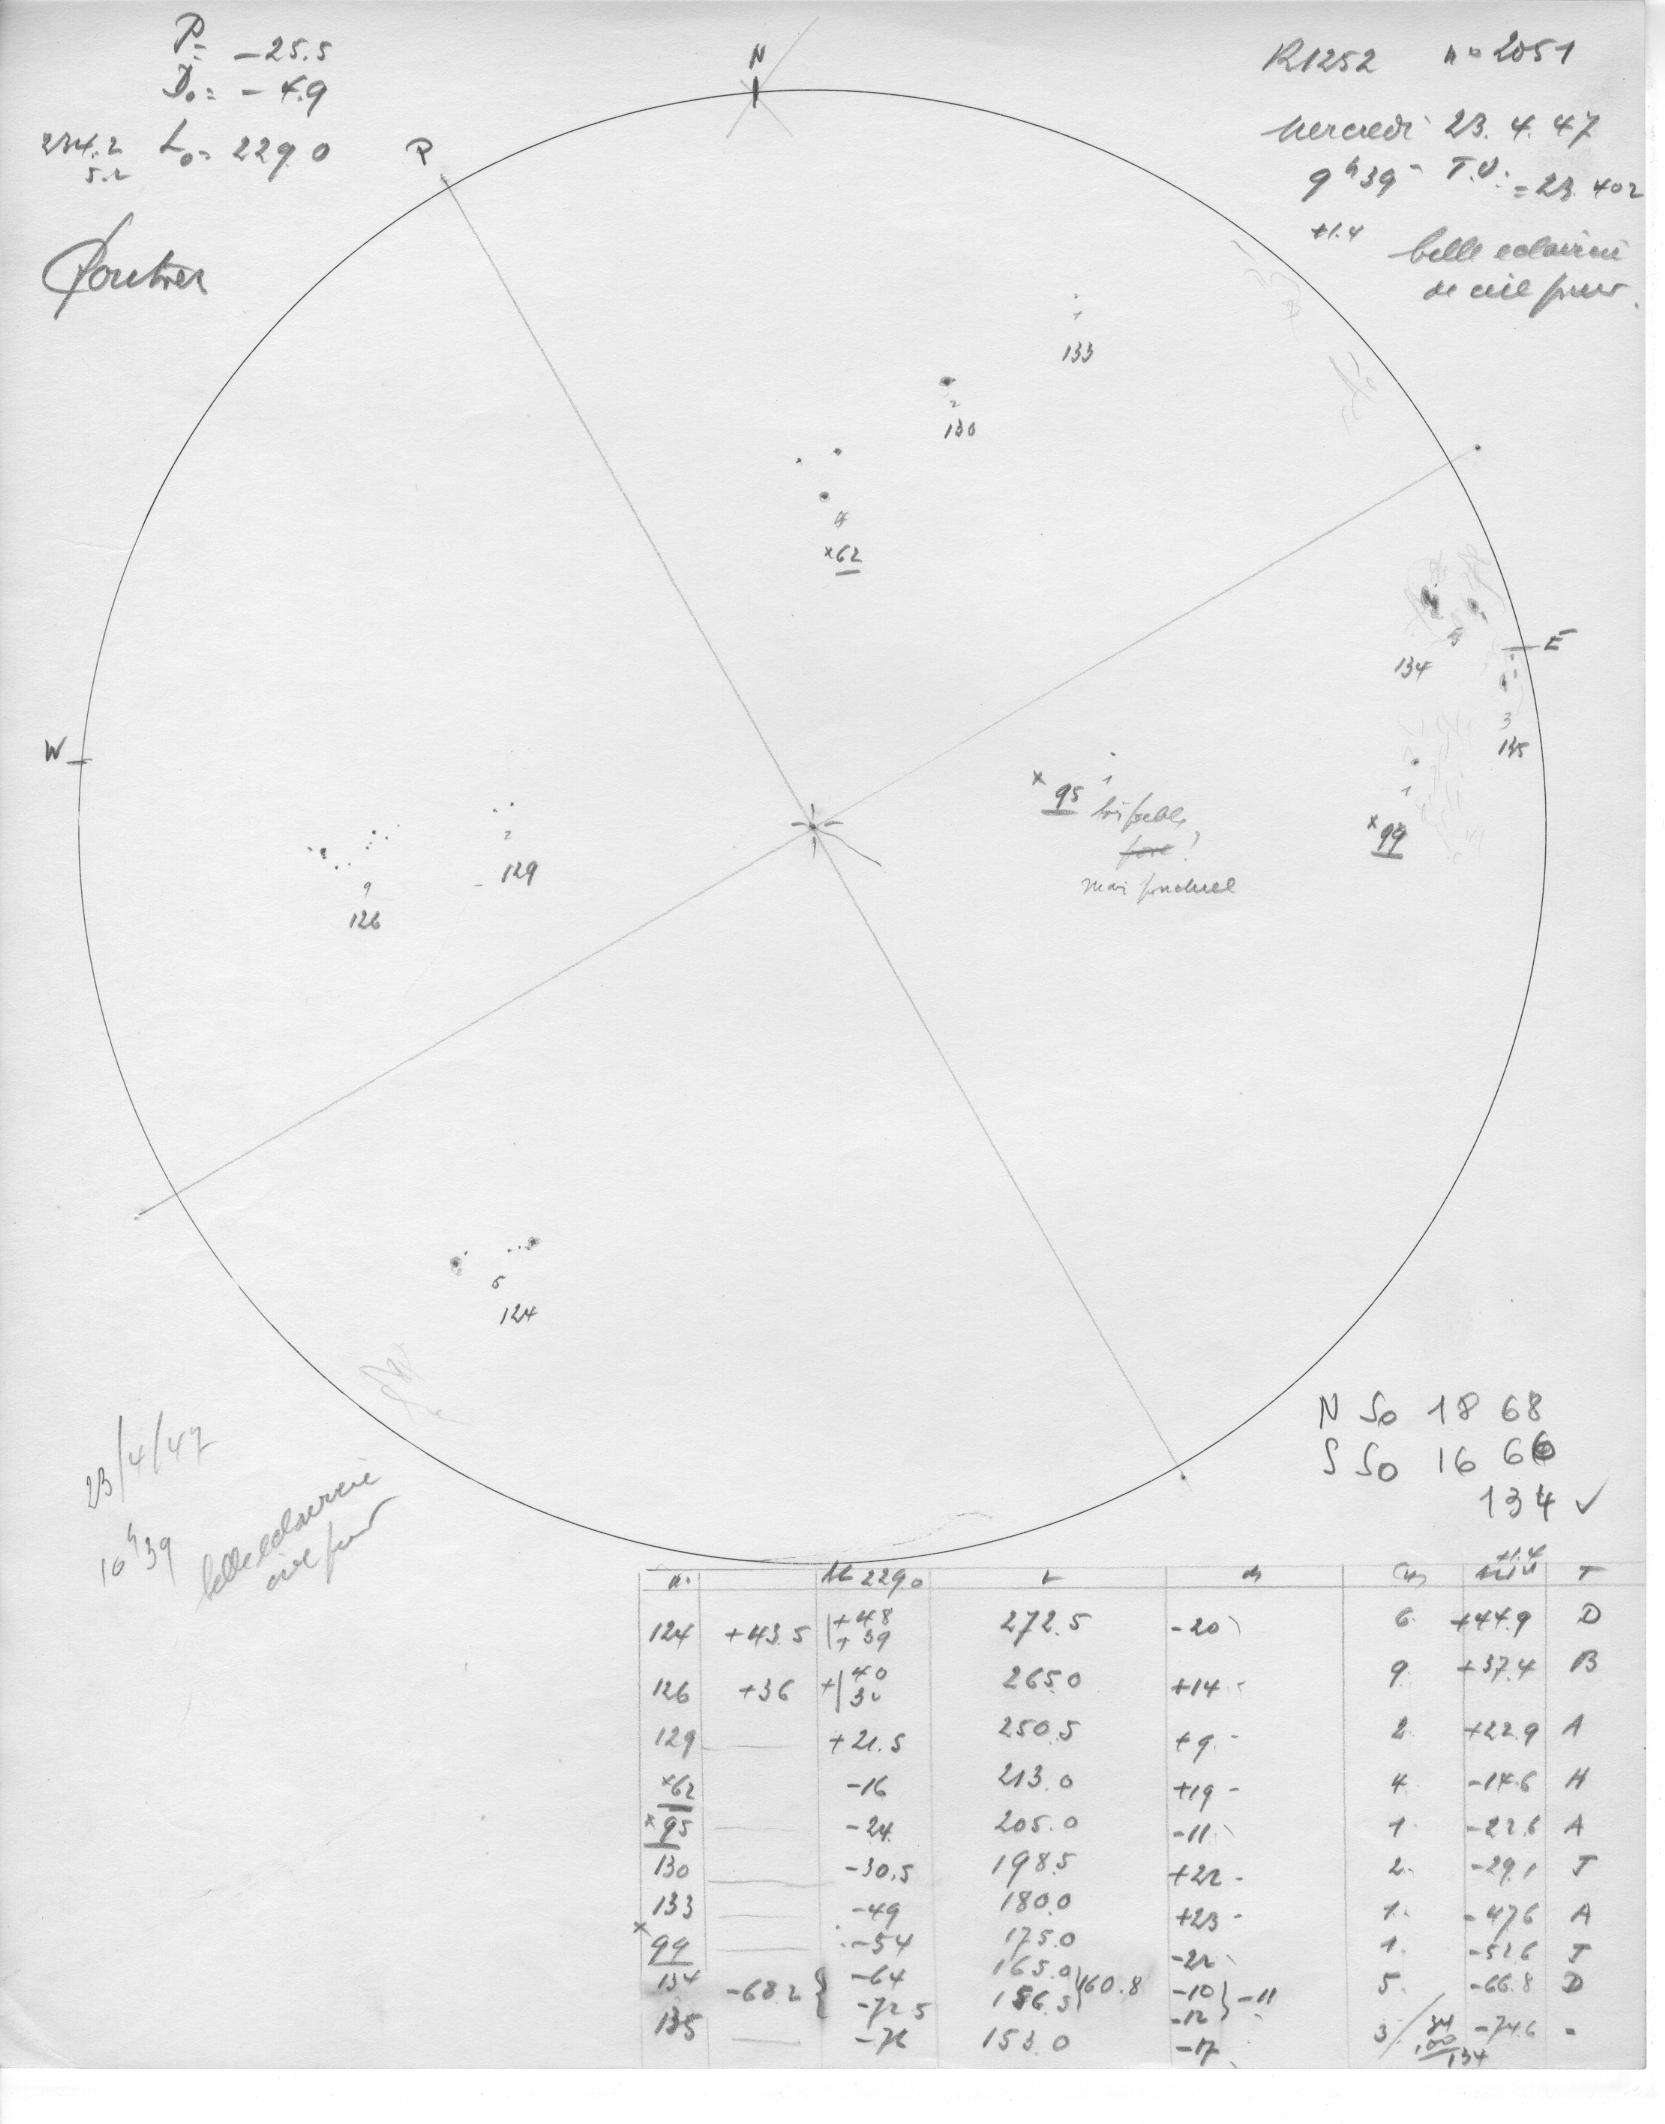 P = -25.5
D₀ = -4.9
234.2 L₀ = 229.0
5.2
R1252 n° 2051
Mercredi 23.4.47
9h39 - T.U. = 23.402
+1.4 belle eclaircie
de ciel pur.
N
P
133
1
130
2
4
×62
134
5
E
3
135
W
×95 1 très faible
!
mais ponctuel
1
×99
2
129
9
126
6
124
23/4/47
10h39
belle eclaircie
ciel pur
N So 18 68
S So 16 66
134 ✓
n. M 229.0 L +1.4 T
124 +43.5 +48 +39 272.5 -20 6 +44.9 D
126 +36 + 40 30 265.0 +14 9 +37.4 B
129 +21.5 250.5 +9 2 +22.9 A
×62 -16 213.0 +19 4 -14.6 H
×95 -24 205.0 -11 1 -22.6 A
130 -30.5 198.5 +22 2 -29.1 J
133 -49 180.0 +23 1 -47.6 A
×99 -54 175.0 -22 1 -52.6 J
134 -68.2 { -64 -72.5 165.0 156.5 } 160.8 -10 -12 } -11 5 -66.8 D
135 -76 153.0 -17 3 / 34 100 134 -74.6 -